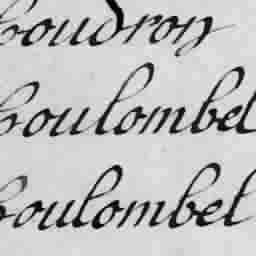 Coudron
Coulombel
Coulombel